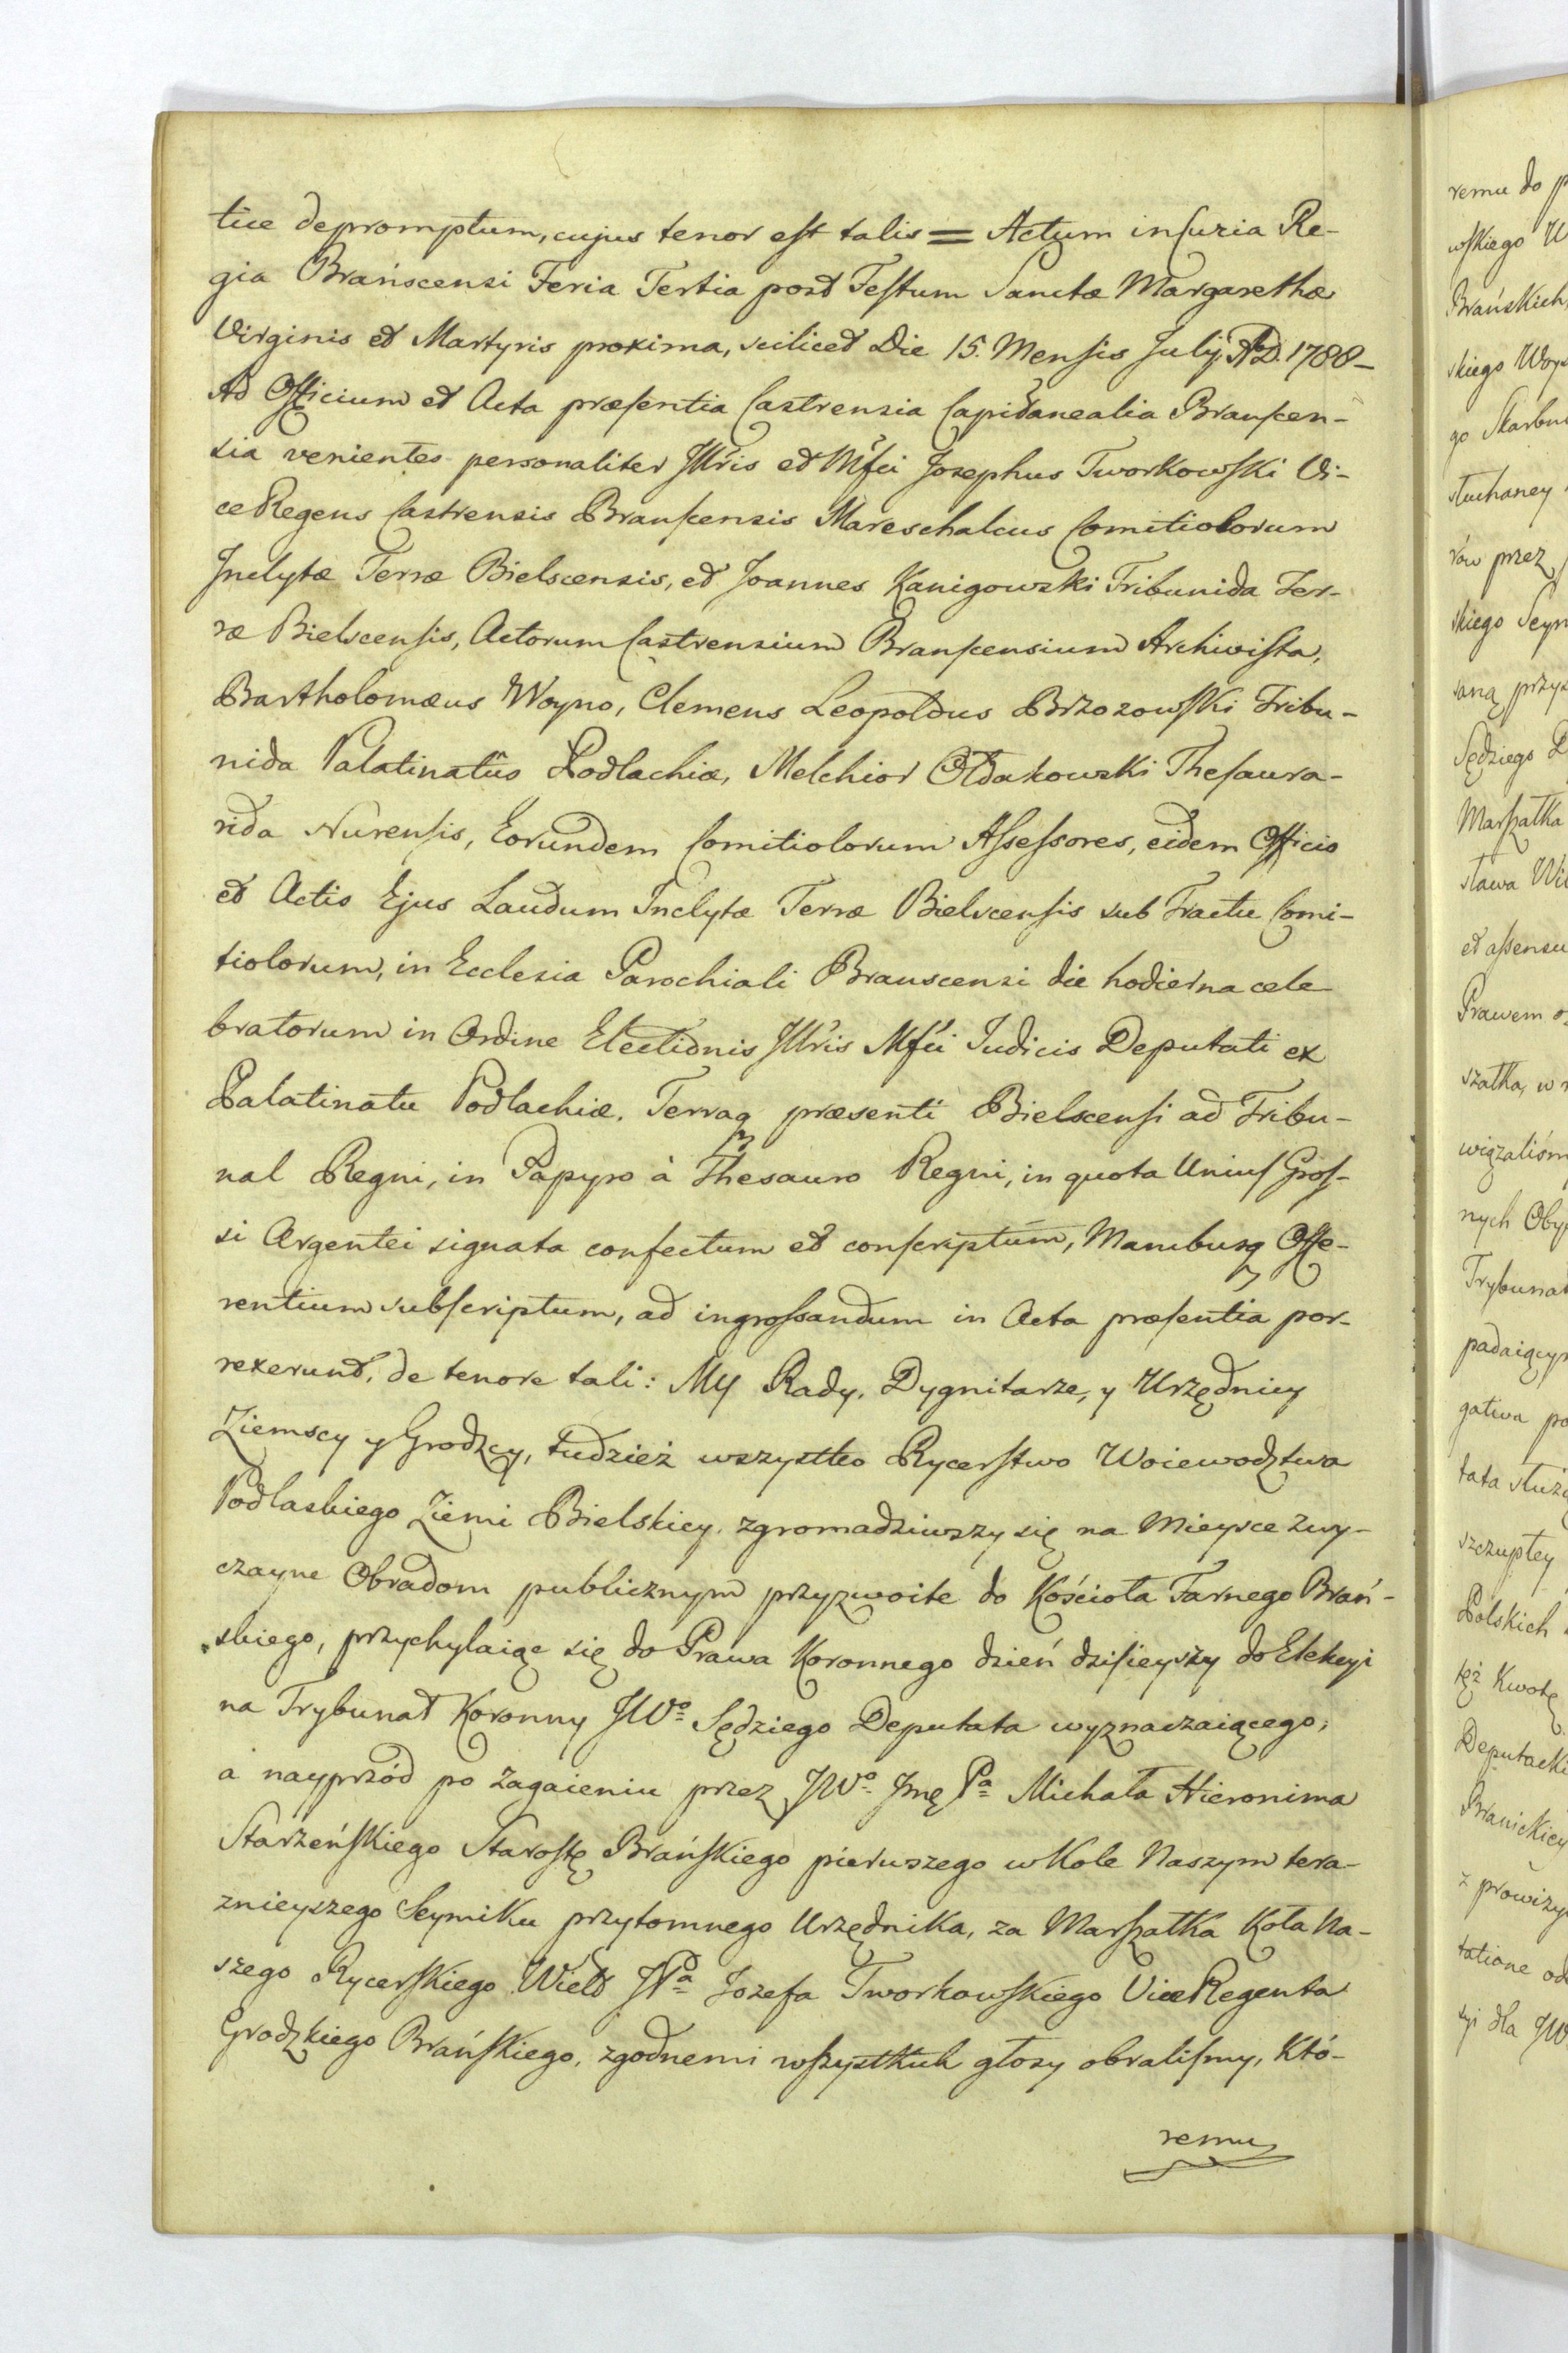 tice depromptum, cujus tenor est talis = Actum in Curia Re-
gia Brańscensi Feria Tertia post Festum Sanctæ Margarethæ
Virginis et Martyris proxima, scilicet Die 15. Mensis Julij A.D. 1788 –
Ad Officium et Acta præsentia Castrensia Capitanealia Branscen-
sia venientes personaliter Jllris et Mfci Josephus Tworkowski Vi-
ce Regens Castrensis Branscensis Mareschalcus Comitiolorum
Jnclytæ Terræ Bielscensis, et Joannes Kanigowski Tribunida Ter-
ræ Bielscensis, Actorum Castrensium Branscensium Archivista,
Bartholomæus Woyno, Clemens Leopoldus Brzozowski Tribu-
nida Palatinatûs Podlachiæ, Melchior Ołdakowski Thesaura-
rida Nurensis, Eorundem Comitiolorum Assessores, eidem Officio
et Actis Ejus Laudum Inclytæ Terræ Bielscensis sub Tractu Comi-
tiolorum, in Ecclesia Parochiali Branscensi die hodierna cele
bratorum in Ordine Electionis Jllris Mfci Judicis Deputati ex
Palatinatu Podlachiæ, Terraq præsenti Bielscensi ad Tribu-
nal Regni, in Papyro à Thesauro Regni, in quota Unius Gros-
si Argentei signata confectum et conscriptum, Manibusq Offe-
rentium subscriptum, ad ingrossandum in Acta præsentia por-
rexerunt, de tenore tali: MY Rady, Dygnitarze, y Urzędnicy
Ziemscy y Grodzcy, tudzież wszystko Rycerstwo Woiewodztwa
Podlaskiego Ziemi Bielskiey, zgromadziwszy się na Mieysce zwy-
czayne Obradom publicznym przyzwoite do Kościoła Farnego Brań-
skiego, przychylaiąc się do Prawa Koronnego dzień dzisieyszy do Elekcyi
na Trybunał Koronny JWo Sędziego Deputata wyznaczaiącego,
a nayprzód po zagaieniu przez JWo Jmę Pa Michała Hieronima
Starzeńskiego Starostę Brańskiego pierwszego w Kole Naszym tera-
znieyszego Seymiku przytomnego Urzędnika, za Marszałka Koła Na-
szego Rycerskiego Wielo JPa Jozefa Tworkowskiego Vice Regenta
Grodzkiego Brańskiego, zgodnemi wszystkich głosy obralismy, Któ-
remu
remu do
wskiego
Brańskich
skiego
go Skarbni
słuchaney
rów przez
skiego Seym
saną
Sędziego
Marszałka
sława
et assensu
Prawem
szałka, w
więzaliśm
nych Oby
Trybunał
padaiącym
gatiwa po
tata służ
szczupłey
Polskich
też Kwotę
Deputacki
Branickiey
z prowizy
tatione od
cyi dla JW